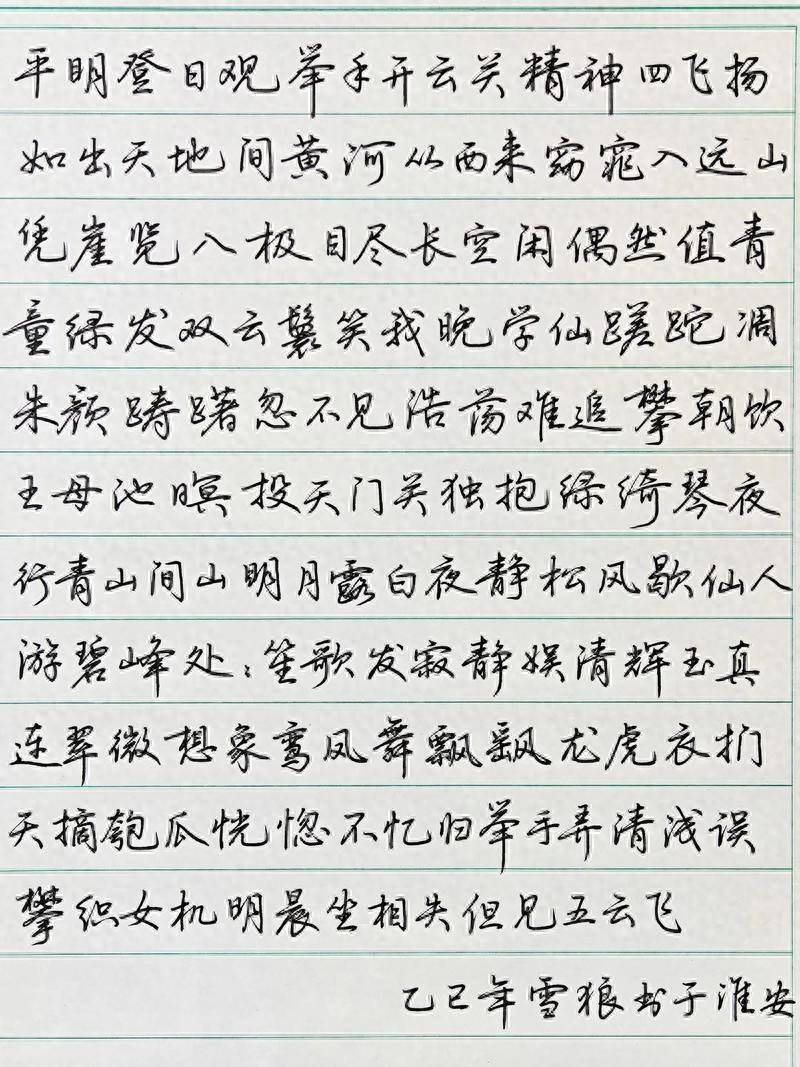 平明登日观举手开云关精神四飞扬
如出天地间黄河从西来窈窕入远山
凭崖览八极目尽长空闲偶然值青
童绿发双云鬟笑我晚学仙蹉跎凋
朱颜踌躇忽不见浩荡难追攀朝饮
王母池暝投天门关独抱绿绮琴夜
行青山间山明月露白夜静松风歇仙人
游碧峰处：笙歌发寂静娱清辉玉真
连翠微想象鸾凤舞飘飖龙虎衣扪
天摘匏瓜恍惚不忆归举手弄清浅误
攀织女机明晨坐相失但见五云飞
乙巳年雪狼书于淮安